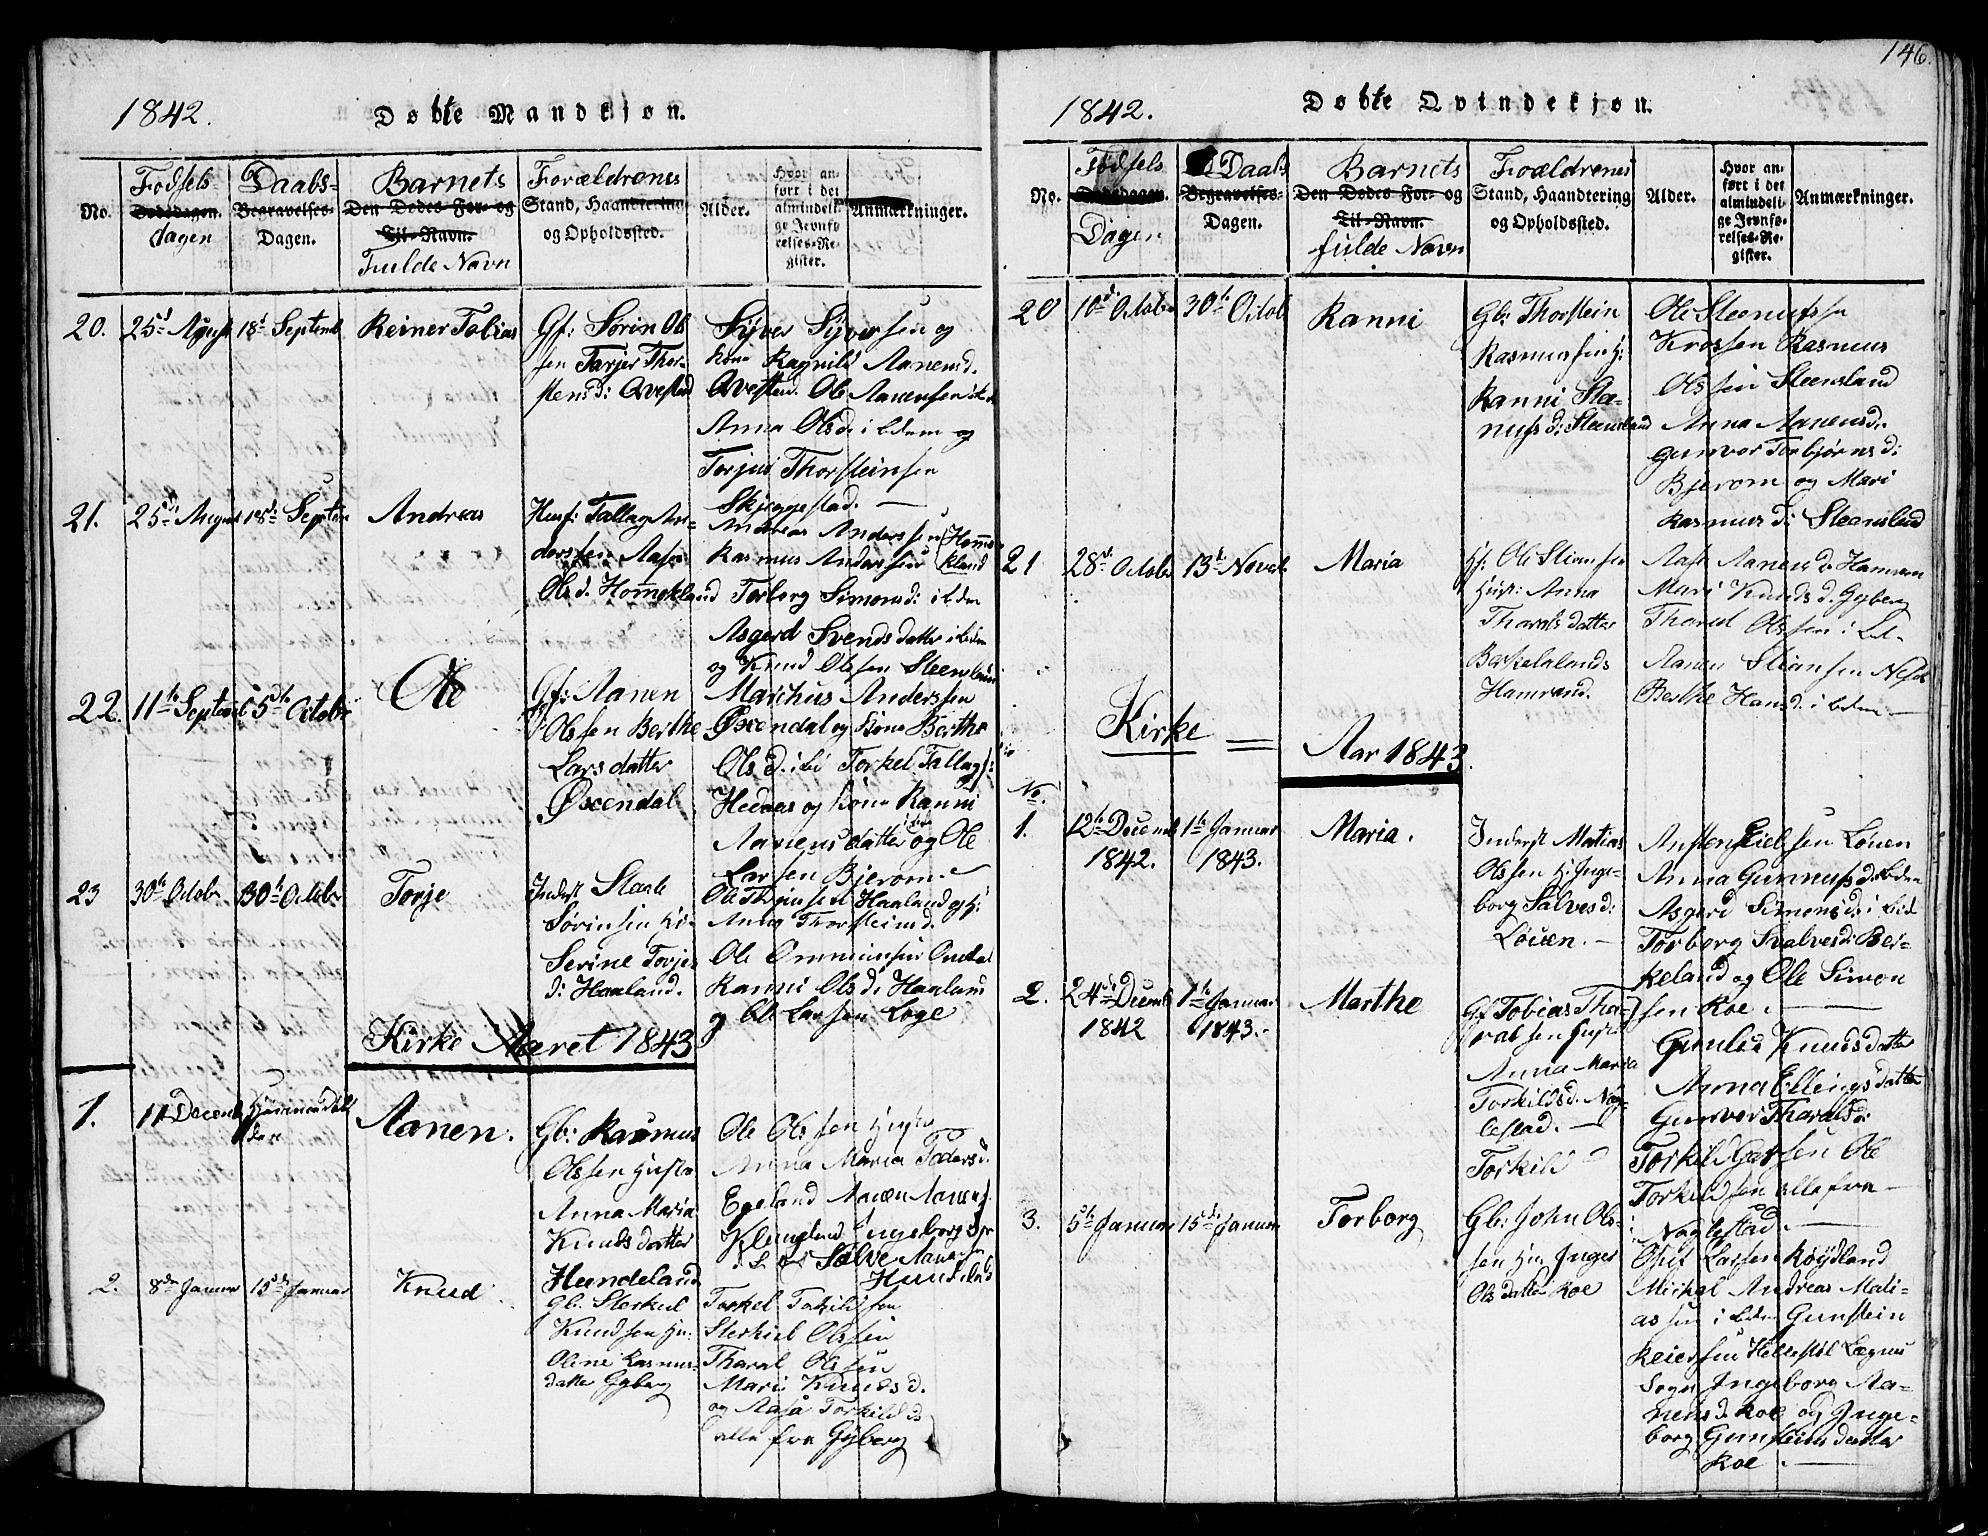 146.
1842.
Døbte Mandkjøn.
No.
Fødsels-
Dødsdagen.
dagen
Daabs-
Begravelses-
Dagen.
Barnets
Den Dødes For- og
Til-Navn.
Fulde Navn
Forældrenes
Stand, Haandtering
og Opholdssted.
Alder.
Hvor an-
ført i det
almindeli-
ge Jevnfø-
relses-Re-
gister.
Anmærkninger.
20. 25d August 18d Septemb Reiner Tobias
Gf: Sørin Ol
sen Tarjer Thor-
stensd: Qvestad
Syver Syversen og
Kone Ragnild Aanensd.
Qvestad. Ole Aanensen
Anna Olsd: ibdm og
Torjus Thorsteinsen
Skjeggestad.
21. 25d August 18d Septem Andreas
Husf: Tallag An-
dersen Aase
Olsd. Homekland
Andreas Anderssen
Rasmus Anderssen Homme-
kland
Torborg Simonsd: ibdm
Asgerd Svends datter ibdm
og Knud Olssen Steensland
22. 11te Septemb 5te Octobr Ole
Gf: Aanen
Olssen Berthe
Lars datter
Øxendal
Marchus Anderssen
Øxendal og Kone Berthe
Olsd. ibd Torkel Tallags:
Hedaas og Kone Ranni
Aanensdatter ibdm og Ole
Larssen Bjerom.
23 30te Octobr 30te Octobr Torje
Inderst Staale
Sørinsen H:
Serine Torjes
d: Haaland.
Ole Haaland og H:
Anna Thorsteinsd.
Ole Ommundsen Omdal
Ranni Olsd. Haaland
og Ole Larssen Loge
Kirke Aaret 1843
1. 11 Decemb Hjemmedøbt
den
Aanen.
Gb: Rasmus
Olssen Hustr
Anna Maria
Knudsdatter
Hundeland
Ole Olssen Hustr
Anna Maria Pedersd.
Egeland Aanen Aanens.
Klungland Ingeborg
Salve Aanens
Hundeland
2. 8de Januar 15de Januar Knud
Gb: Sterkul
Knudsen Hu:
Oline Rasmus-
datter Gyberg
Torkel Torkildsen
Sterkul Olssen
Tharal Olssen
Mari Knudsd.
og Aasa Torkildsd
alle fra Gyberg
1842.
Døbte Qvindekjøn.
No.
Fødsels
Dødsdagen.
Dagen
Daabs
Begravelses-
Dagen.
Barnets
Den Dødes For- og
Til-Navn.
fulde Navn
Forældrenes
Stand, Haandtering
og Opholdssted.
Alder.
Hvor an-
ført i det
almindeli-
ge Jevnfø-
relses-Re-
gister.
Anmærkninger.
20 10d Octobr 30te Octob Ranni
Gb: Thorstein
Rasmussen H:
Ranni Stee-
nufsd: Steensland
Ole Steenufsen
Krossen Rasmus
Olssen Steensland
Anna Aanensd.
Gunvor Torbjørnsd:
Bjerom og Mari
Rasmusd: Steensland
21 28d Octobr 13d Novemb Maria
Hf: Ole Stiansen
Hust: Anna
Tharals datter
Birkelands
Hamrand.
Aase Aanensd: Hamran
Mari Knudsd. Gyberg
Tharal Olssen ibd-
Aanen Stiansen
Berthe Hansd: ibdm
Kirke Aar 1843.
No.
1. 12te Decemb
1842.
1te Januar
1843.
Maria.
Inderst Mathias
Olssen H: Inge-
borg Salvesd:
Løuen.
Løuen
Anna Gunnufsd. ibdm
Asgerd Simonsd: ibd
Torborg Salvesd: Ber-
keland og Ole Simon
sen Roe.
2. 24de Decemb
1842
1te Januar
1843.
Marthe
Gf Tobias Tha-
ralsen Hust
Anna Maria
Torkildsd. Nag-
lestad.
Torkild
Gunild Knudsdatter
Anna Ellings datter
Gunvor Tharalsd:
Torkild Ole
Torkildsen alle fra
Naglestad.
3. 5te Januar 15de Januar Torborg
Gb: John Ols-
sen Hu Inger
Olsdatter Roe
Larssen Røysland
Michal Andreas Mati-
assen ibdm Gunstein
Reiersen Hellestøl
Sogn Ingeborg Aa-
nensd. Roe og Inge-
borg Gunsteinsdatter
Roe.